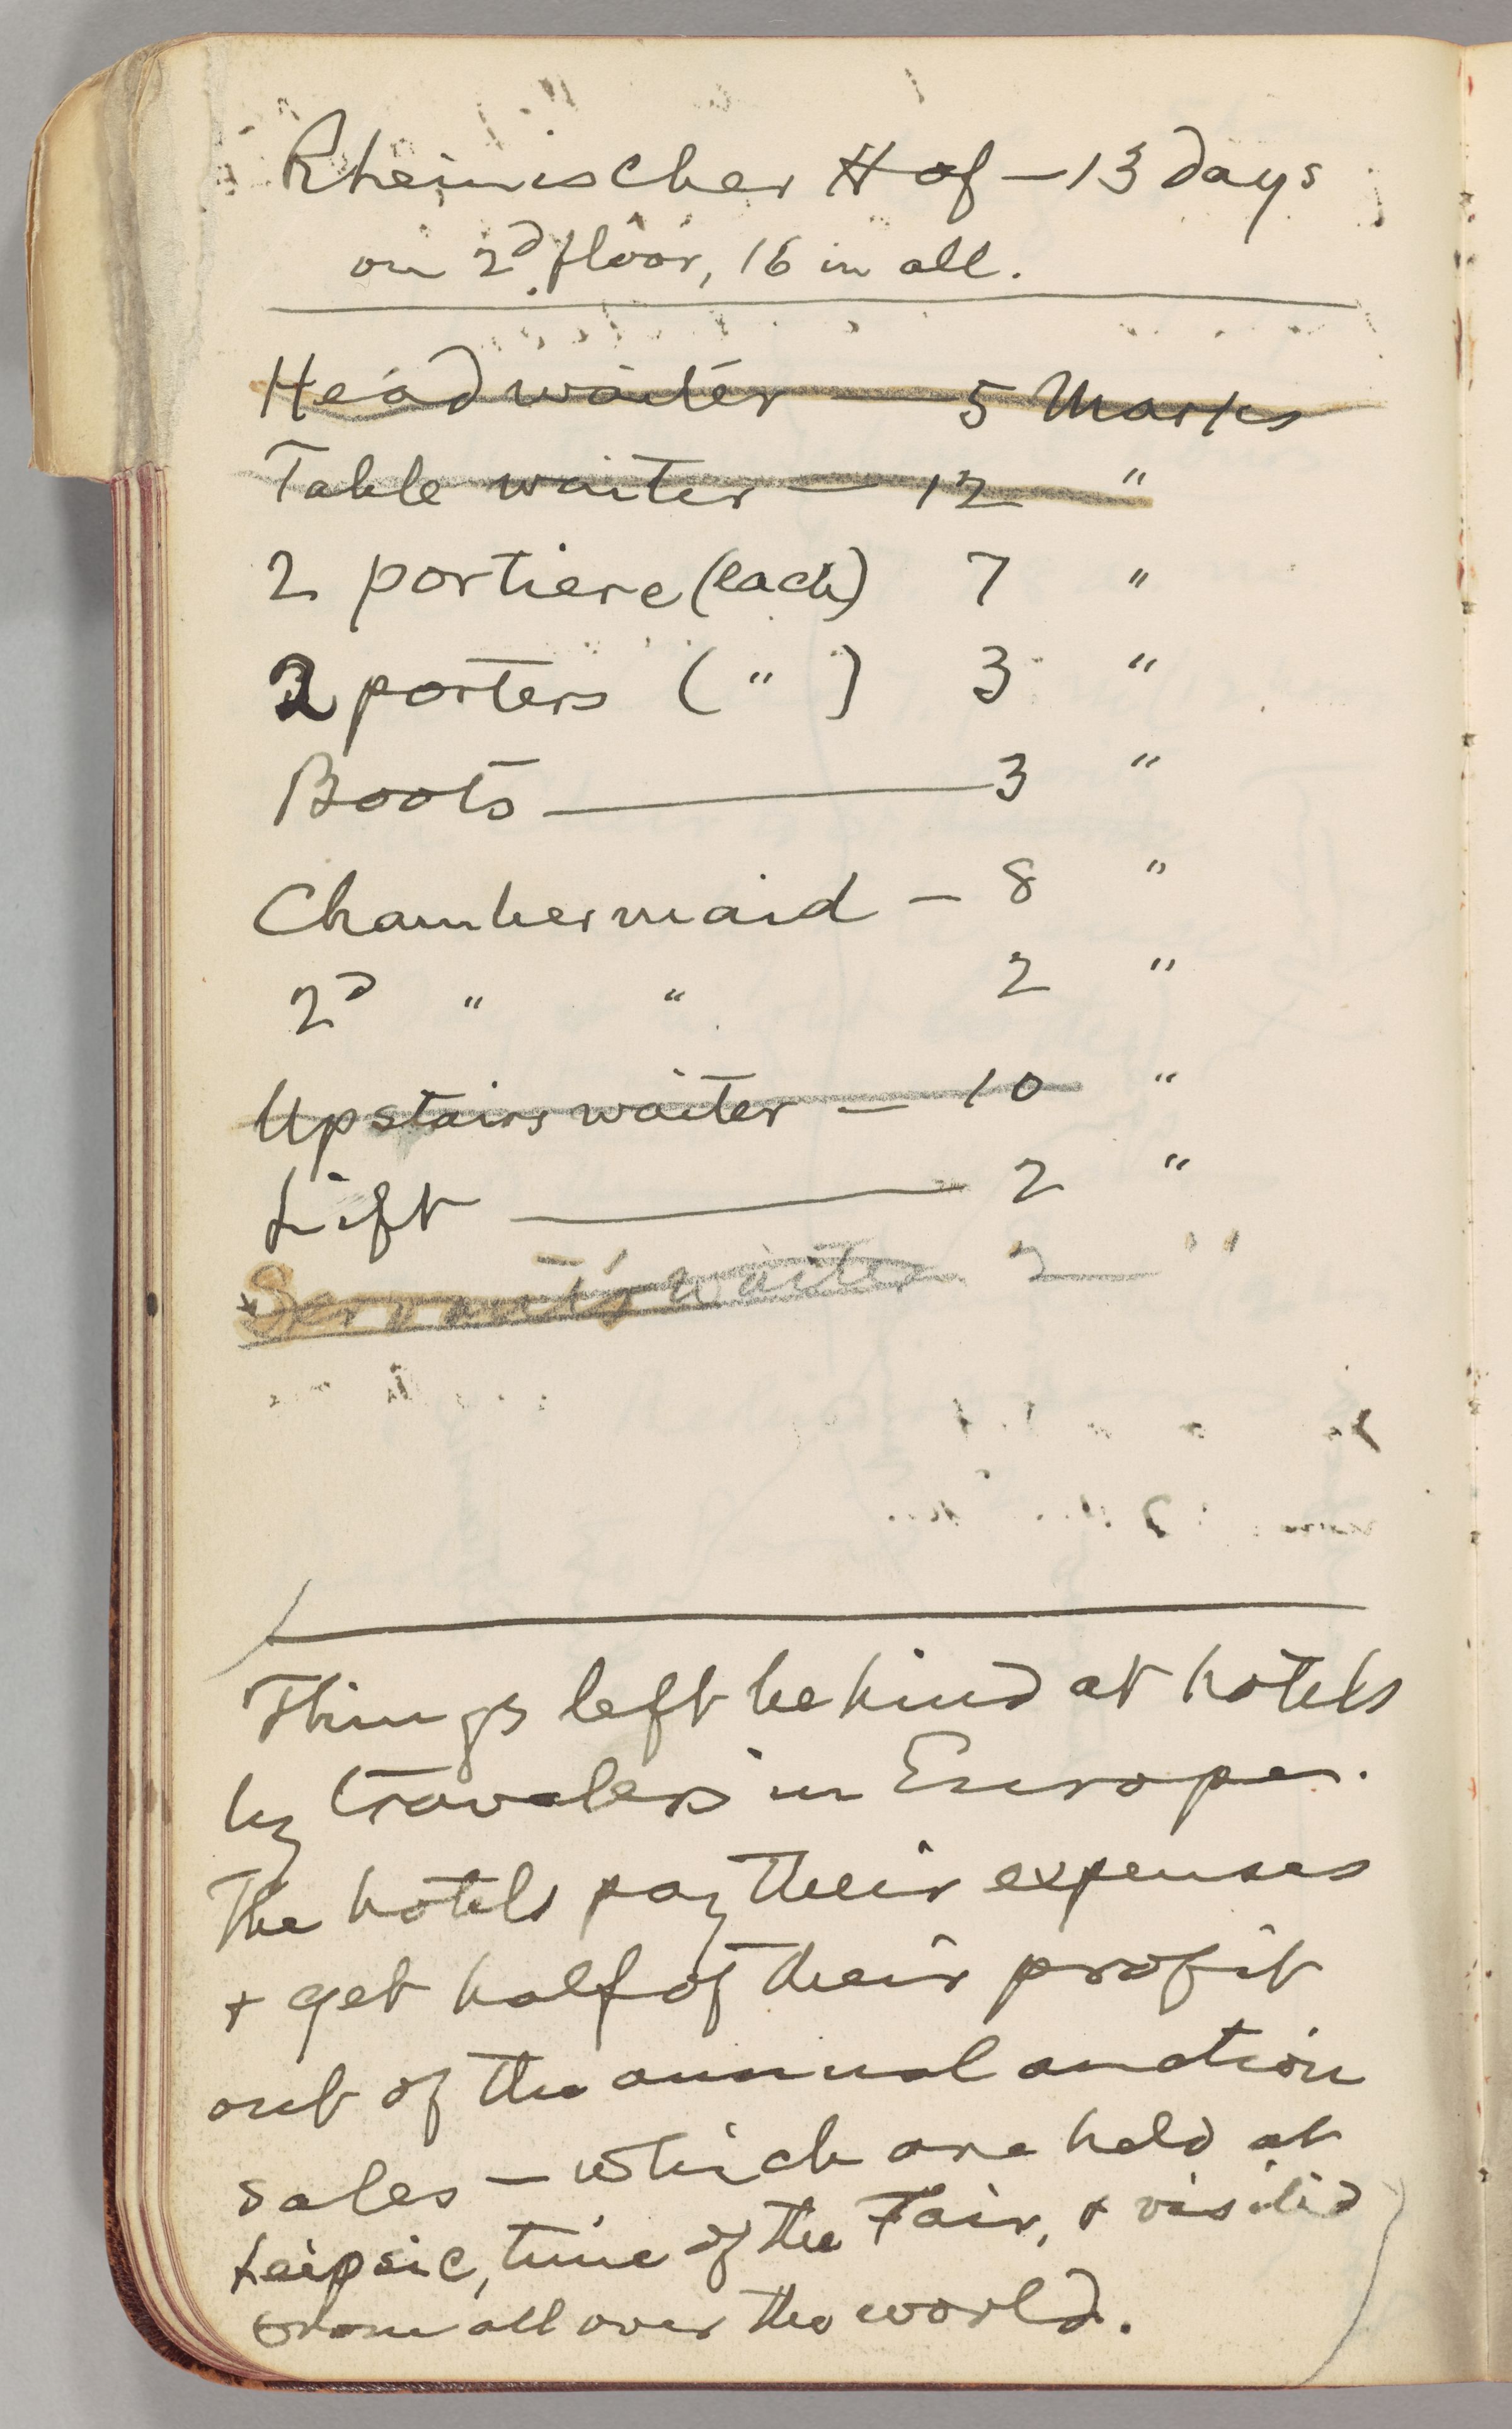 Rheinischer Hof — 13 days
on 2d floor, 16 in all.
Head waiter — 5 Marks
Table waiter — 12 "
2 portiere (each) 7 "
2 porters ( " ) 3 "
Boots — 3 "
Chambermaid — 8 "
2d " " 2 "
Upstairs waiter — 10 "
Lift — 2 "
Servants' waiter 2 "
Things left behind at hotels
by travelers in Europe.
The hotels pay their expenses
+ get half of their profit
out of the annual auction
sales — which are held at
Leipsic, time of the Fair, + visited
from all over the world.